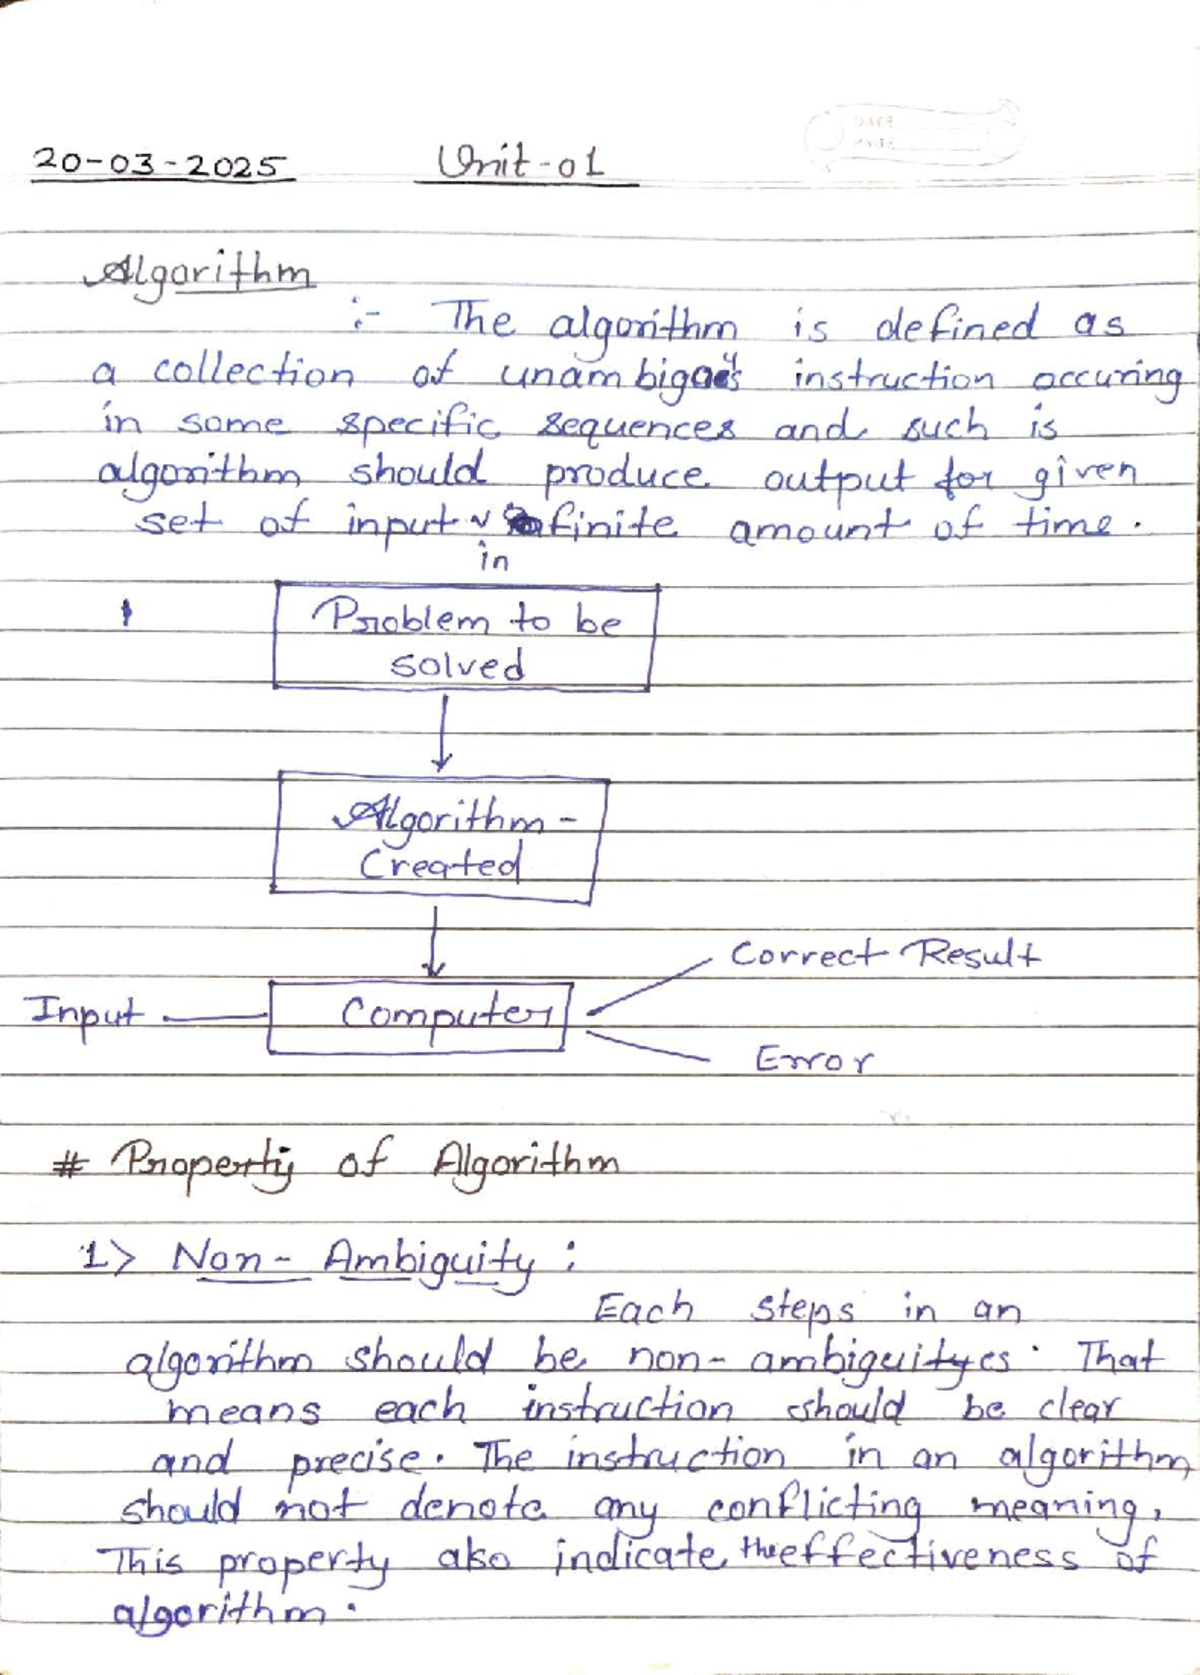 20-03-2025 Unit-01
Algorithm
:- The algorithm is defined as
a collection of unambigous instruction occuring
in some specific sequences and such is
algorithm should produce output for given
set of input in finite amount of time.
Problem to be
solved
Algorithm-
Created
Correct Result
Input Computer
Error
# Property of Algorithm
1> Non-Ambiguity :
Each steps in an
algorithm should be non-ambiguityes. That
means each instruction should be clear
and precise. The instruction in an algorithm
should not denote any conflicting meaning,
This property also indicate the effectiveness of
algorithm.